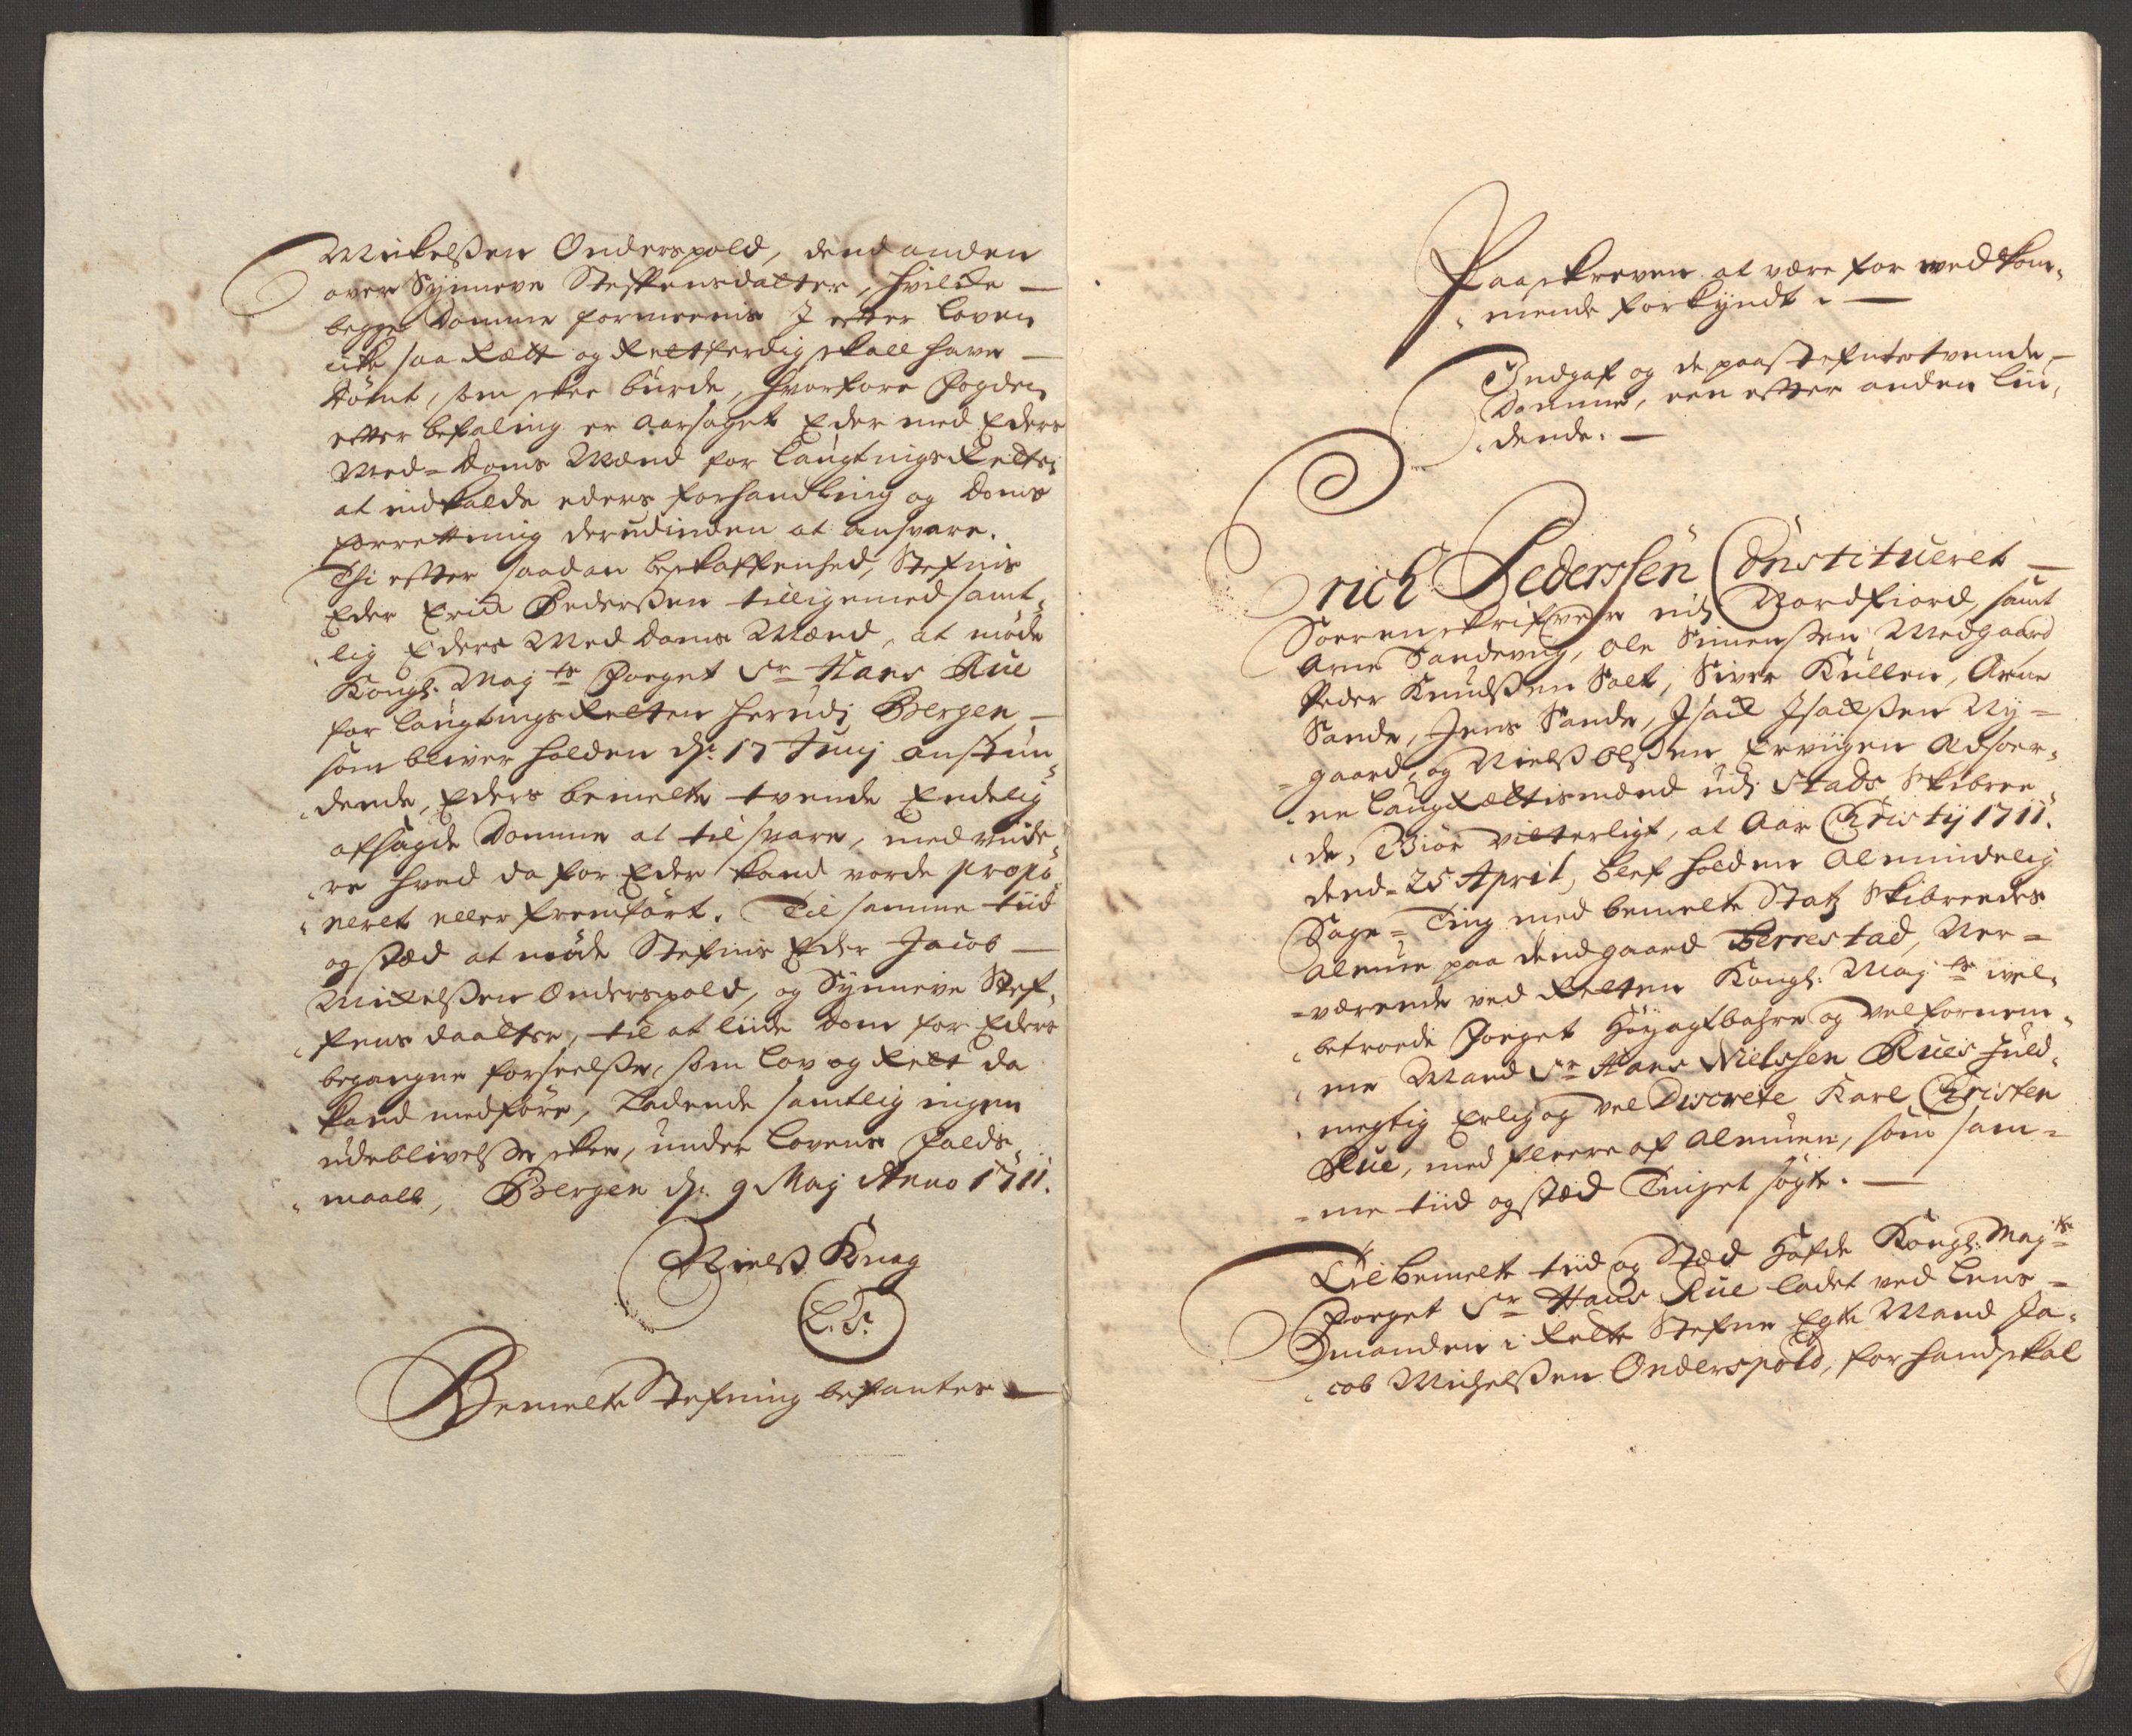 Mickelssen Onderspold, dend anden
over Synneve Steffensdatter, hvilcke —
begge Domme formeenis I efter Loven
icke saa Rætt og Retferdig skall have —
dömt, som skee burde, hvorfore Fogden
efter befaling er aarsaget Eder med Eders
Med-Doms Mænd for Laugtings Retten
at indkalde eders forhandling og Doms
forretning derudinden at ansvare.
Thi efter saadan beskaffenhed, Stefnis
Eder Erick Pederssen tilligemed samt-
lig Eders Med Doms Mænd, at möde
Kongl. May:ts Foeget Sr Hans Rue
for Laugtings Retten herudj Bergen —
som bliver holden d: 17 Junj anstun-
dende, Eders bemelte tvende Endelig
afsagde Domme at tilsvare, med viide-
re hved da for Eder kand vorde propo-
neret eller fremfört. Til samme tiid
og sted at möde Stefnis Eder Jacob —
Mickelssen Onderspold, og Synneve Stef-
fens daatter, til at liide Dom for Eders
begangne forseelsse, som Lov og Rett da
kand medföre, Ladende samtlig ingen
udeblivelse skee, under Lovens Falds-
maall, Bergen d: 9 Maj Anno 1711.
Nielss Knag
L.S.
Bemelte Stefning befantes —
Paaskreven at være for wedkom-
mende forkyndt. —
Indgaf og de paastefnte tvende —
Domme, een efter anden Liu-
dende. —
Erich Pederssen Constitueret —
Sorenskrifver udj Nordfiord, samt
Arne Sandevug, Ole Simenssen Medgaard
Peder Knudssen Salt, Siver Kullen, Arne
Sande, Jens Sande, Isack Isackssen Ny-
gaard, og Nielss Olssen Erviigen Edsoer-
ne Laugrættismænd udj Stads Skibree-
de, Giör vitterligt, at Aar Christij 1711.
dend 25 April, blef holden Almindelig
Sage-Ting med bemelte Statz Skibredes
Almue paa dend gaard Berrestad, Ner-
værende ved Retten Kongl: May:ts vel-
betroede Foeget Höyagtbahre og velfornem-
me Mand Sr Hans Nielssen Rues Fuld-
megtig Erlig og vel Discrete Karl Christen
Rue, med fleere af Almuen, som sam-
me tiid og sted Tinget sögte. —
Til bemelte tiid og Sted Hafde Kongl: May:ts
Foeget Sr Hans Rue ladet ved Lens-
manden i Rette Stefne Egte Mand Ja-
cob Michelssen Onderspold, for hand skal